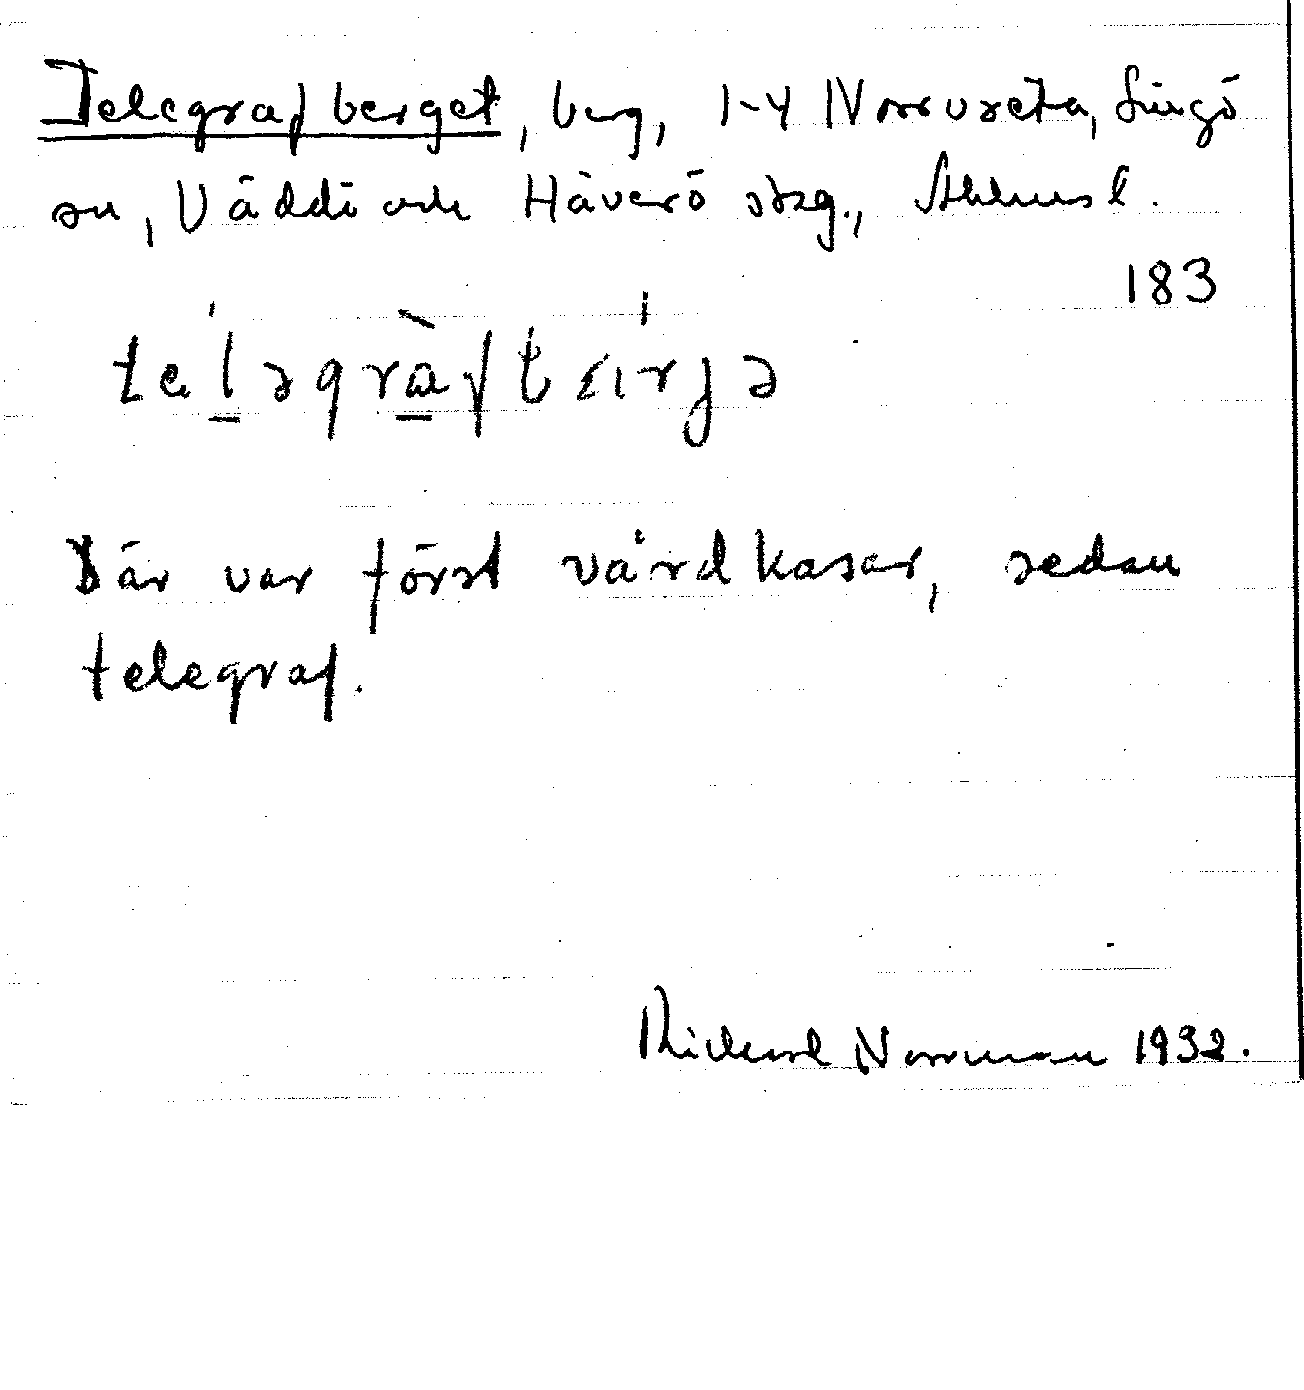 Telegrafberget, berg, 1-4 Norrvreta, Singö
sn, Väddö och Häverö skg., Sthlms l.
183
Där var först vårdkasar, sedan
telegraf.
Richard Norrman 1932.